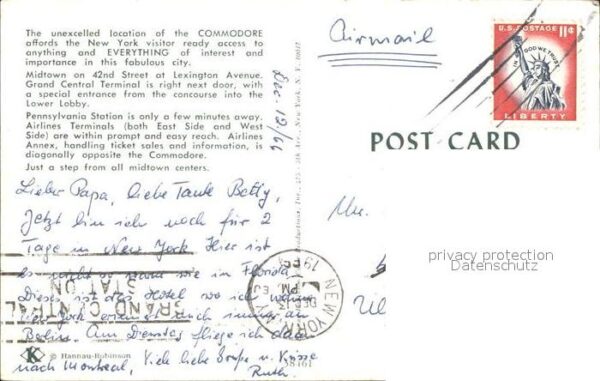 The unexcelled location of the COMMODORE
affords the New York visitor ready access to
anything and EVERYTHING of interest and
importance in this fabulous city.
Midtown on 42nd Street at Lexington Avenue.
Grand Central Terminal is right next door, with
a special entrance from the concourse into the
Lower Lobby.
Pennsylvania Station is only a few minutes away.
Airlines Terminals (both East Side and West
Side) are within prompt and easy reach. Airlines
Annex, handling ticket sales and information, is
diagonally opposite the Commodore.
Just a step from all midtown centers.
Dec. 12/66
Lieber Papa, liebe Tante Betty,
Jetzt bin ich noch für 2
Tage in New York. Hier ist
es nicht so warm wie in Florida
Dieses ist das Hotel wo ich wohne
New York erinnert mich immer an
Berlin. Am Dienstag fliege ich dann
nach Montreal. Viele liebe Grüße u. Küsse
Ruth.
K © Hannau-Robinson
38461
Airmail
U.S. POSTAGE 11¢
IN GOD WE TRUST
LIBERTY
POST CARD
privacy protection
Datenschutz
NEW YORK, N.Y.
DEC
PM
19
GRAND CENTRAL
STATION